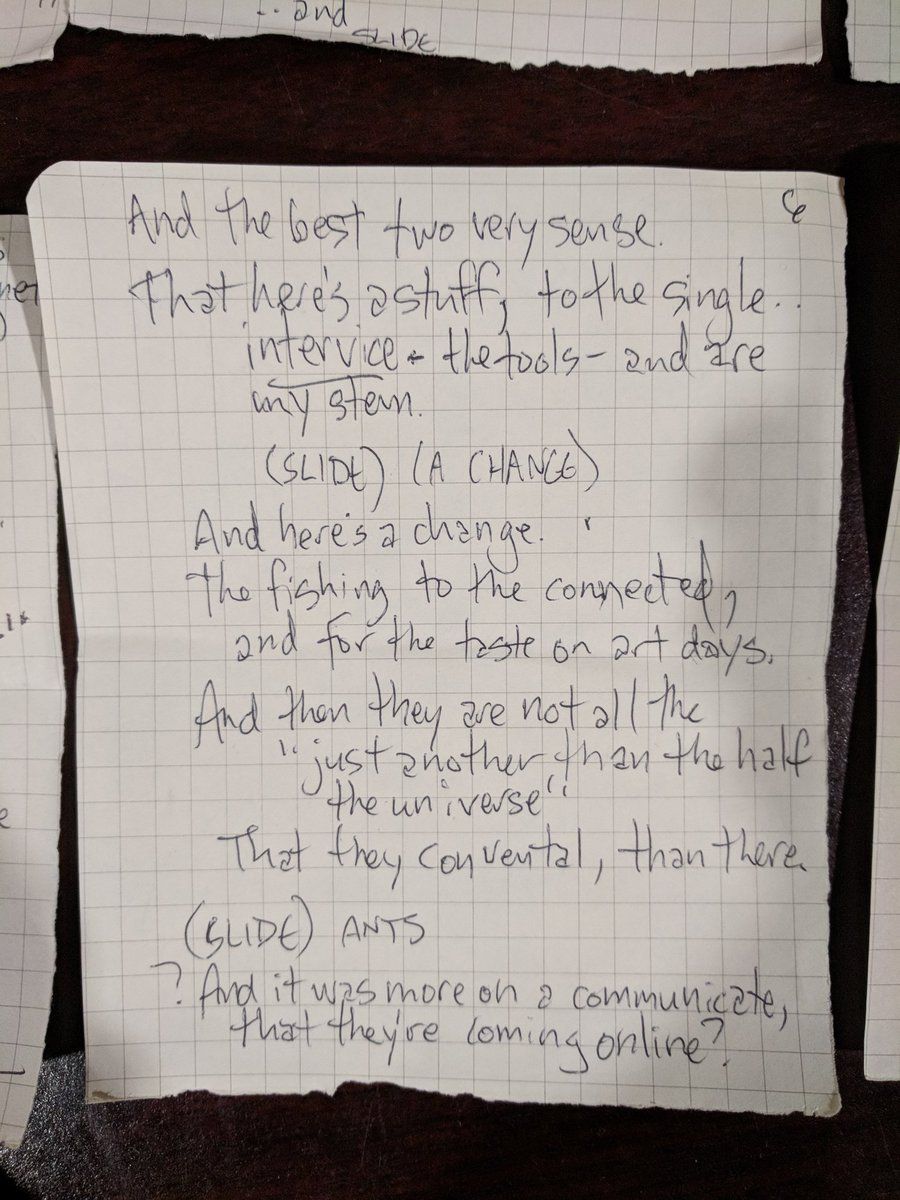 .. and
SLIDE
6
And the best two very sense.
That here's a stuff, to the single..
intervice - the tools - and are
my stem.
(SLIDE) (A CHANGE)
And here's a change.
The fishing to the connected,
and for the taste on art days.
And then they are not all the
"just another, than the half
the universe".
That they convental, than there.
(SLIDE) ANTS
? And it was more on a communicate,
that they're coming online?